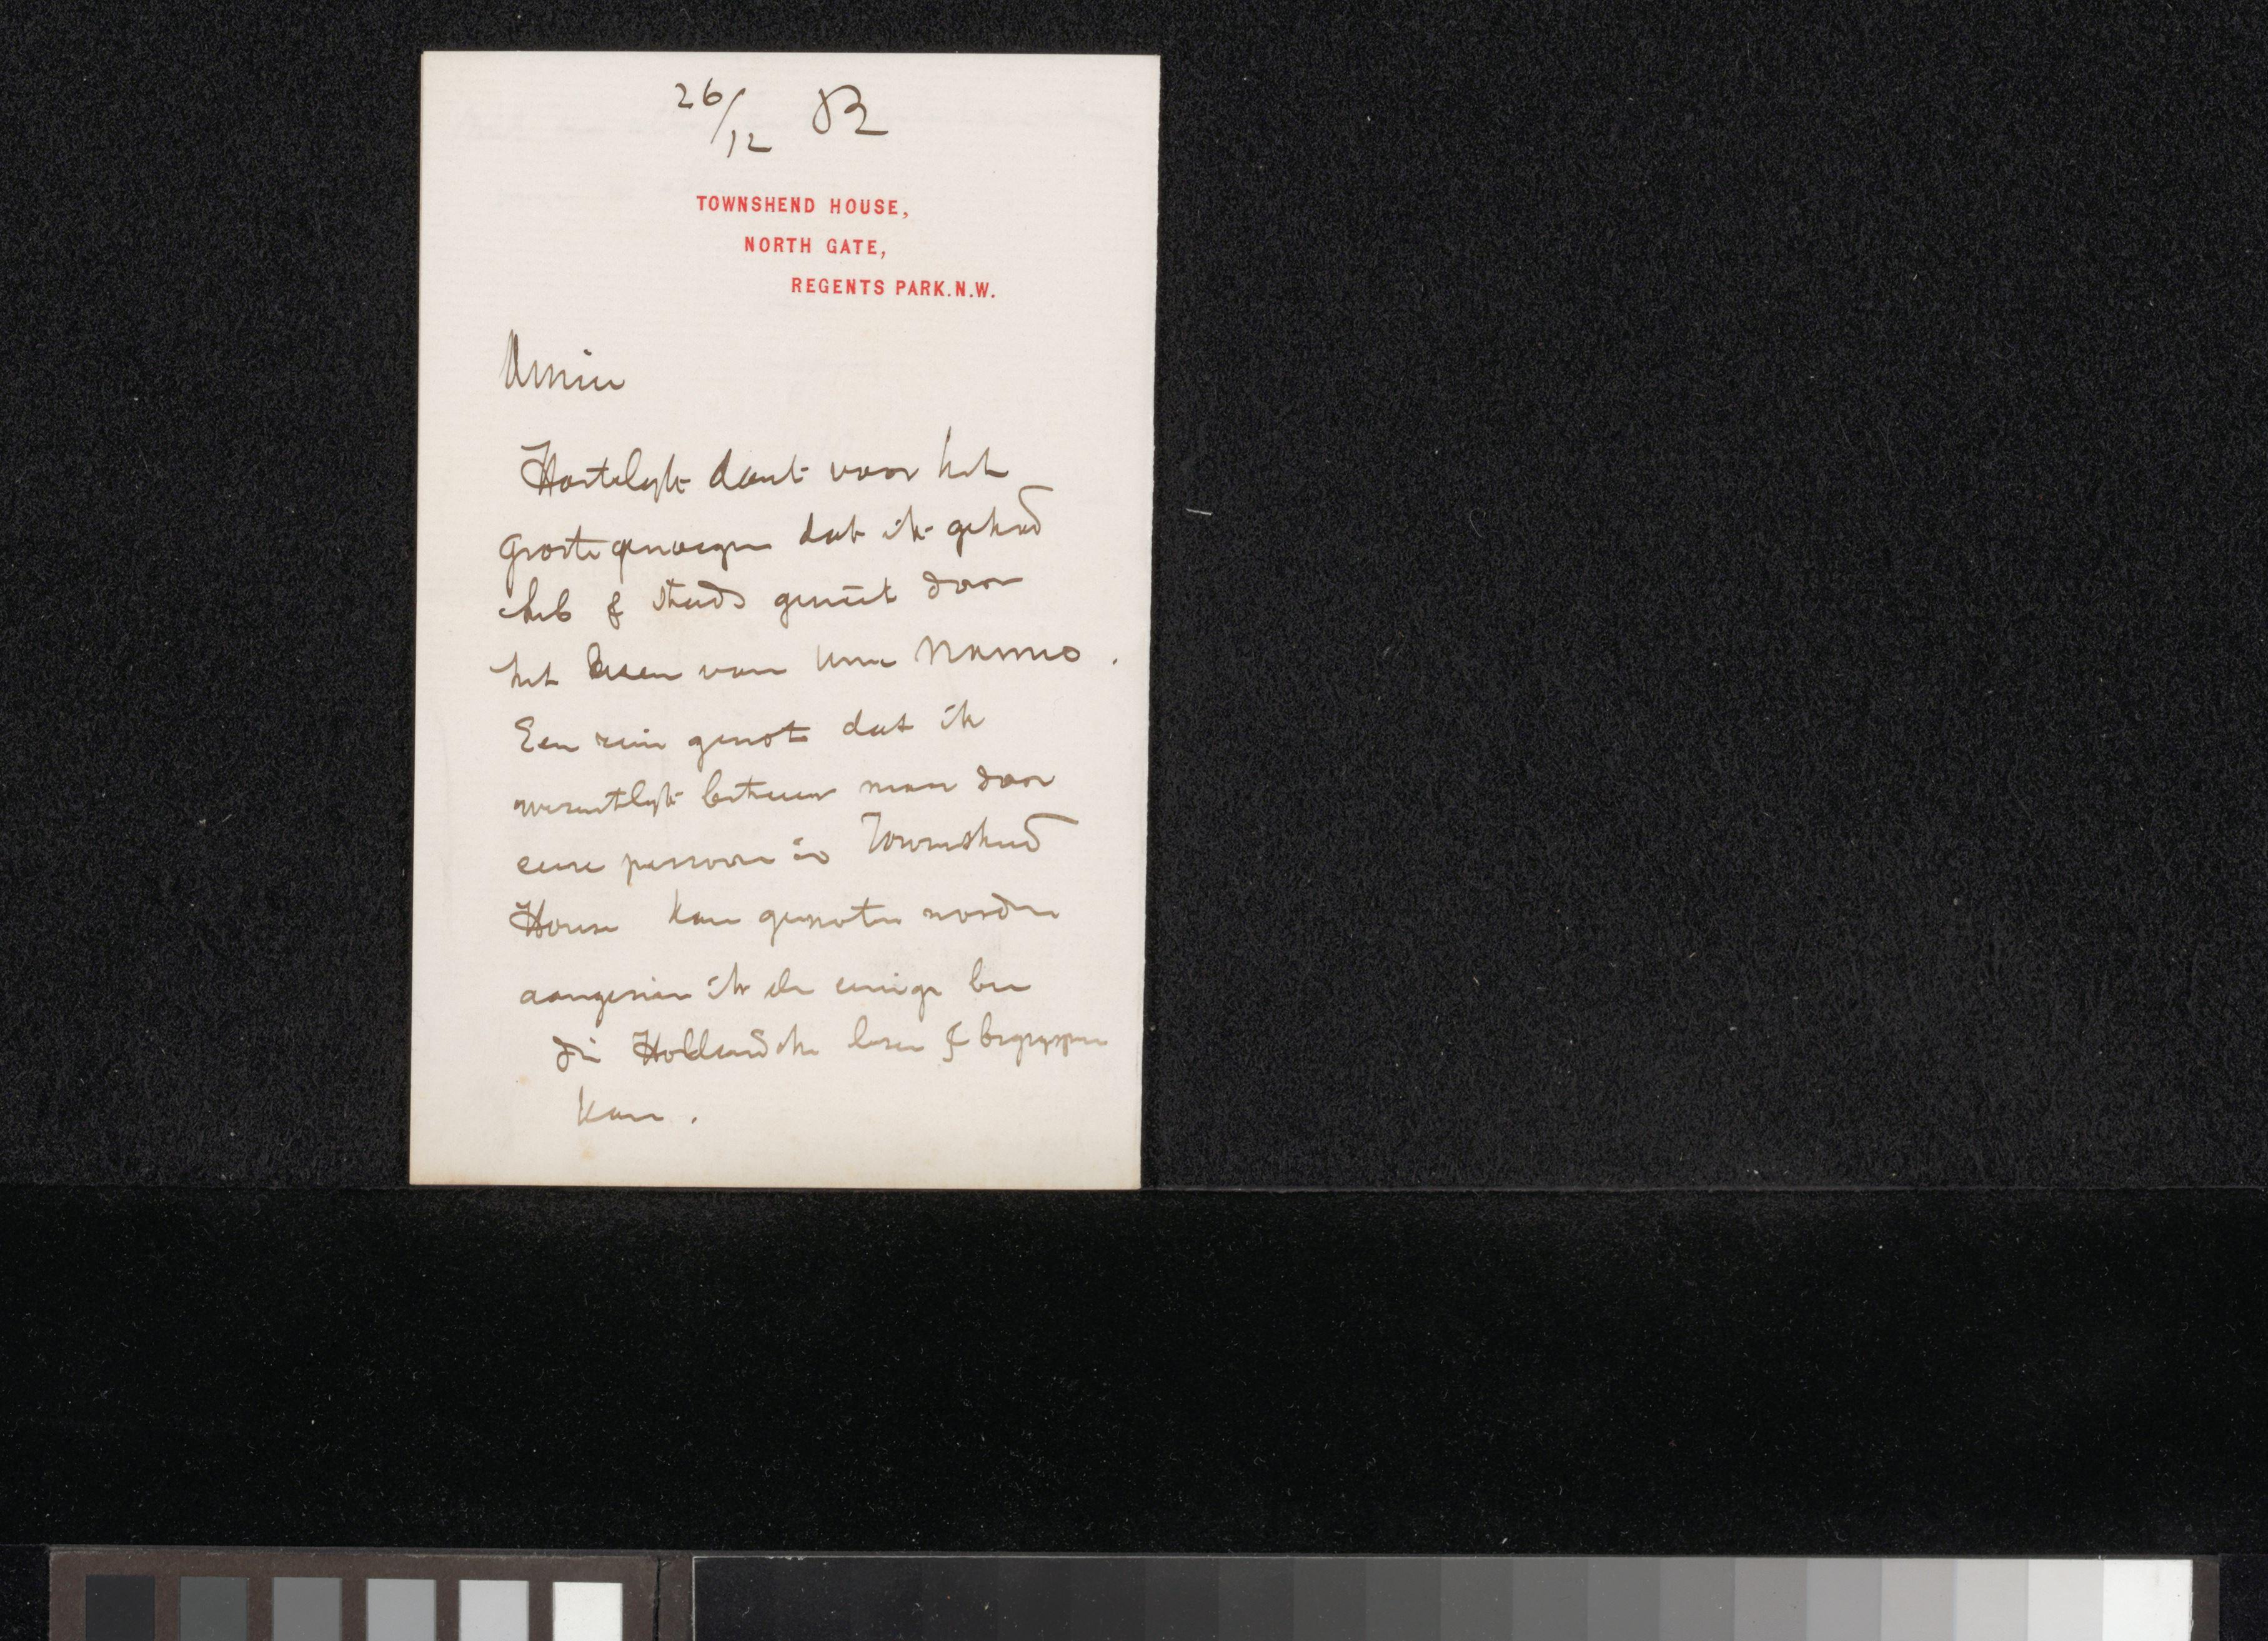 26/12 82
TOWNSHEND HOUSE,
NORTH GATE,
REGENTS PARK.N.W.
Amice
Hartelyk dank voor het
groote genoegen dat ik gehad
heb & steeds geniet door
het lesen van Uwe Nanno.
Een rein genot dat ik
wesentlyk betreur maar door
eene persoon in Townshend
House kan genoten worden
aangesien ik de eenige ben
die Hollandsche lesen & begrypen
kan.